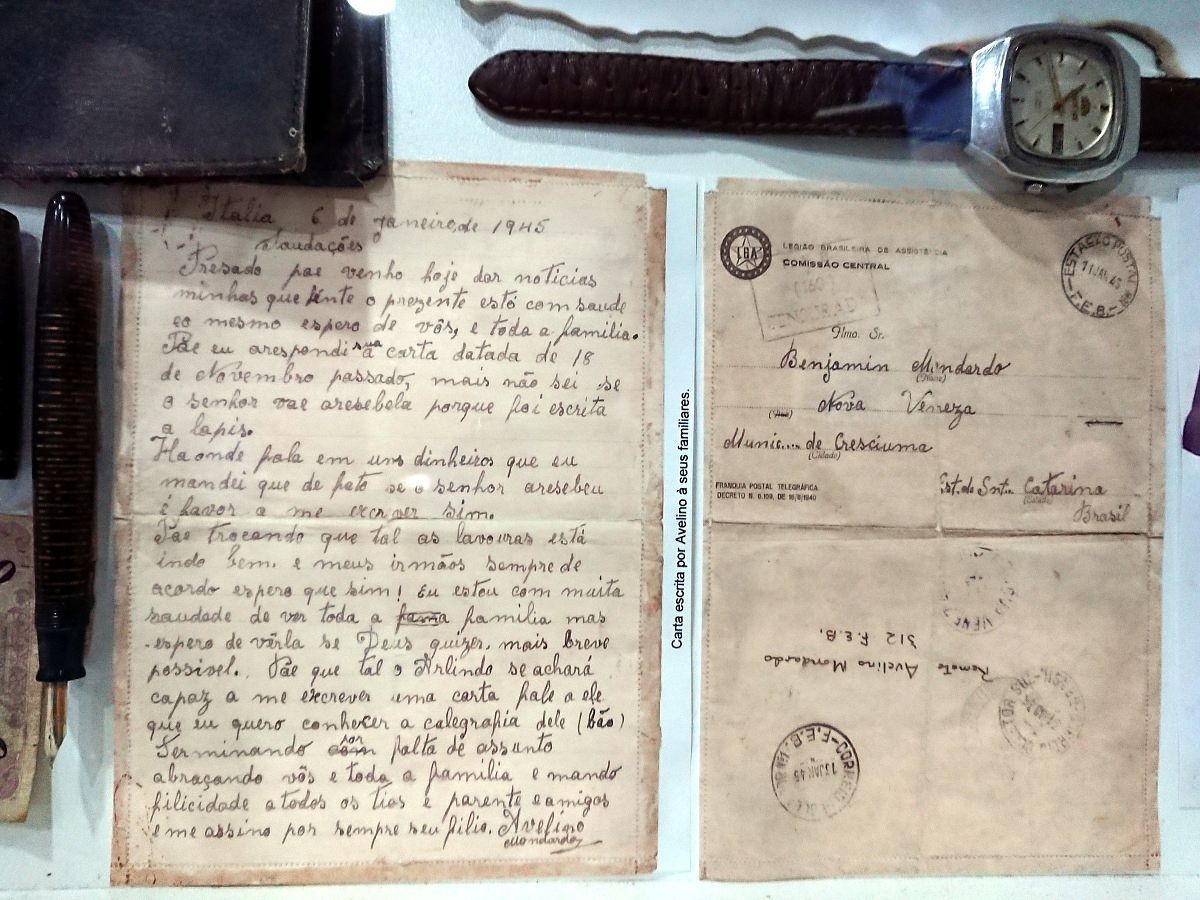 Italia 6 de janeiro, de 1945
Saudações
Presado pae venho hoje dar noticias
minhas que tinte o prezente está com saude
eo mesmo espero de vôs, e toda a familia.
Pae eu arespondi sua carta datada de 18
de Novembro passado, mais não sei se
o senhor vae aresebela porque foi escrita
a lapis.
Haonde fala em uns dinheiros que eu
mandei que de fato se o senhor aresebeu
é favor a me escrever sim.
Pae trocando que tal as lavouras está
indo bem. e meus irmãos sempre de
acordo espero que sim! Eu estou com muita
saudade de ver toda a familia mas
espero de vêrla se Deus quizer. mais breve
possivel. Pae que tal o Arlindo se achará
capaz a me excrever uma carta fale a ele
que eu quero conhecer a calegrafia dele (bão)
Terminando por falta de assunto
abraçando vôs e toda a familia e mando
filicidade atodos os tios e parente e amigos
e me assino por sempre seu filio. Avelino
Mondardo
Carta escrita por Avelino à seus familiares.
LBA
LEGIÃO BRASILEIRA DE ASSISTÊNCIA
COMISSÃO CENTRAL
ESTAÇÃO POSTAL
11 JAN 45
F.E.B.
Ilmo. Sr.
Benjamin Mondardo
(Nome)
Nova Veneza
(Rua)
Munic... de Cresciuma
(Cidade)
FRANQUIA POSTAL TELEGRÁFICA
DECRETO N. 6.109, DE 16/8/1940
Est. de Snt.. Catarina
(Estado)
Brasil
Remete Avelino Mondardo
312 F.E.B.
CORREIO
13 JAN 45
F.E.B.